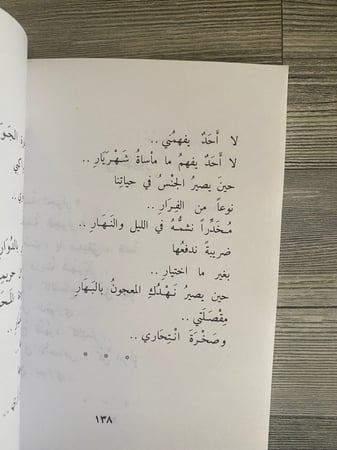 لا أَحَدٌ يفهمُني ..
لا أَحَدٌ يفهمُ ما مأساةُ شَهْرَيَارِ ..
حينَ يصيرُ الجِنْسُ في حياتِنا
نوعاً من الفِرَارِ ..
مُخَدِّراً نشمُّهُ في الليل والنَهَارِ ..
ضريبةً ندفعُها
بغير ما اختيارِ ..
حين يصيرُ نَهْدُكِ المعجونُ بالبَهَارِ
مِقْصَلَتي ..
وصَخْرَةَ انْتِحَاري ..
* * *
١٣٨